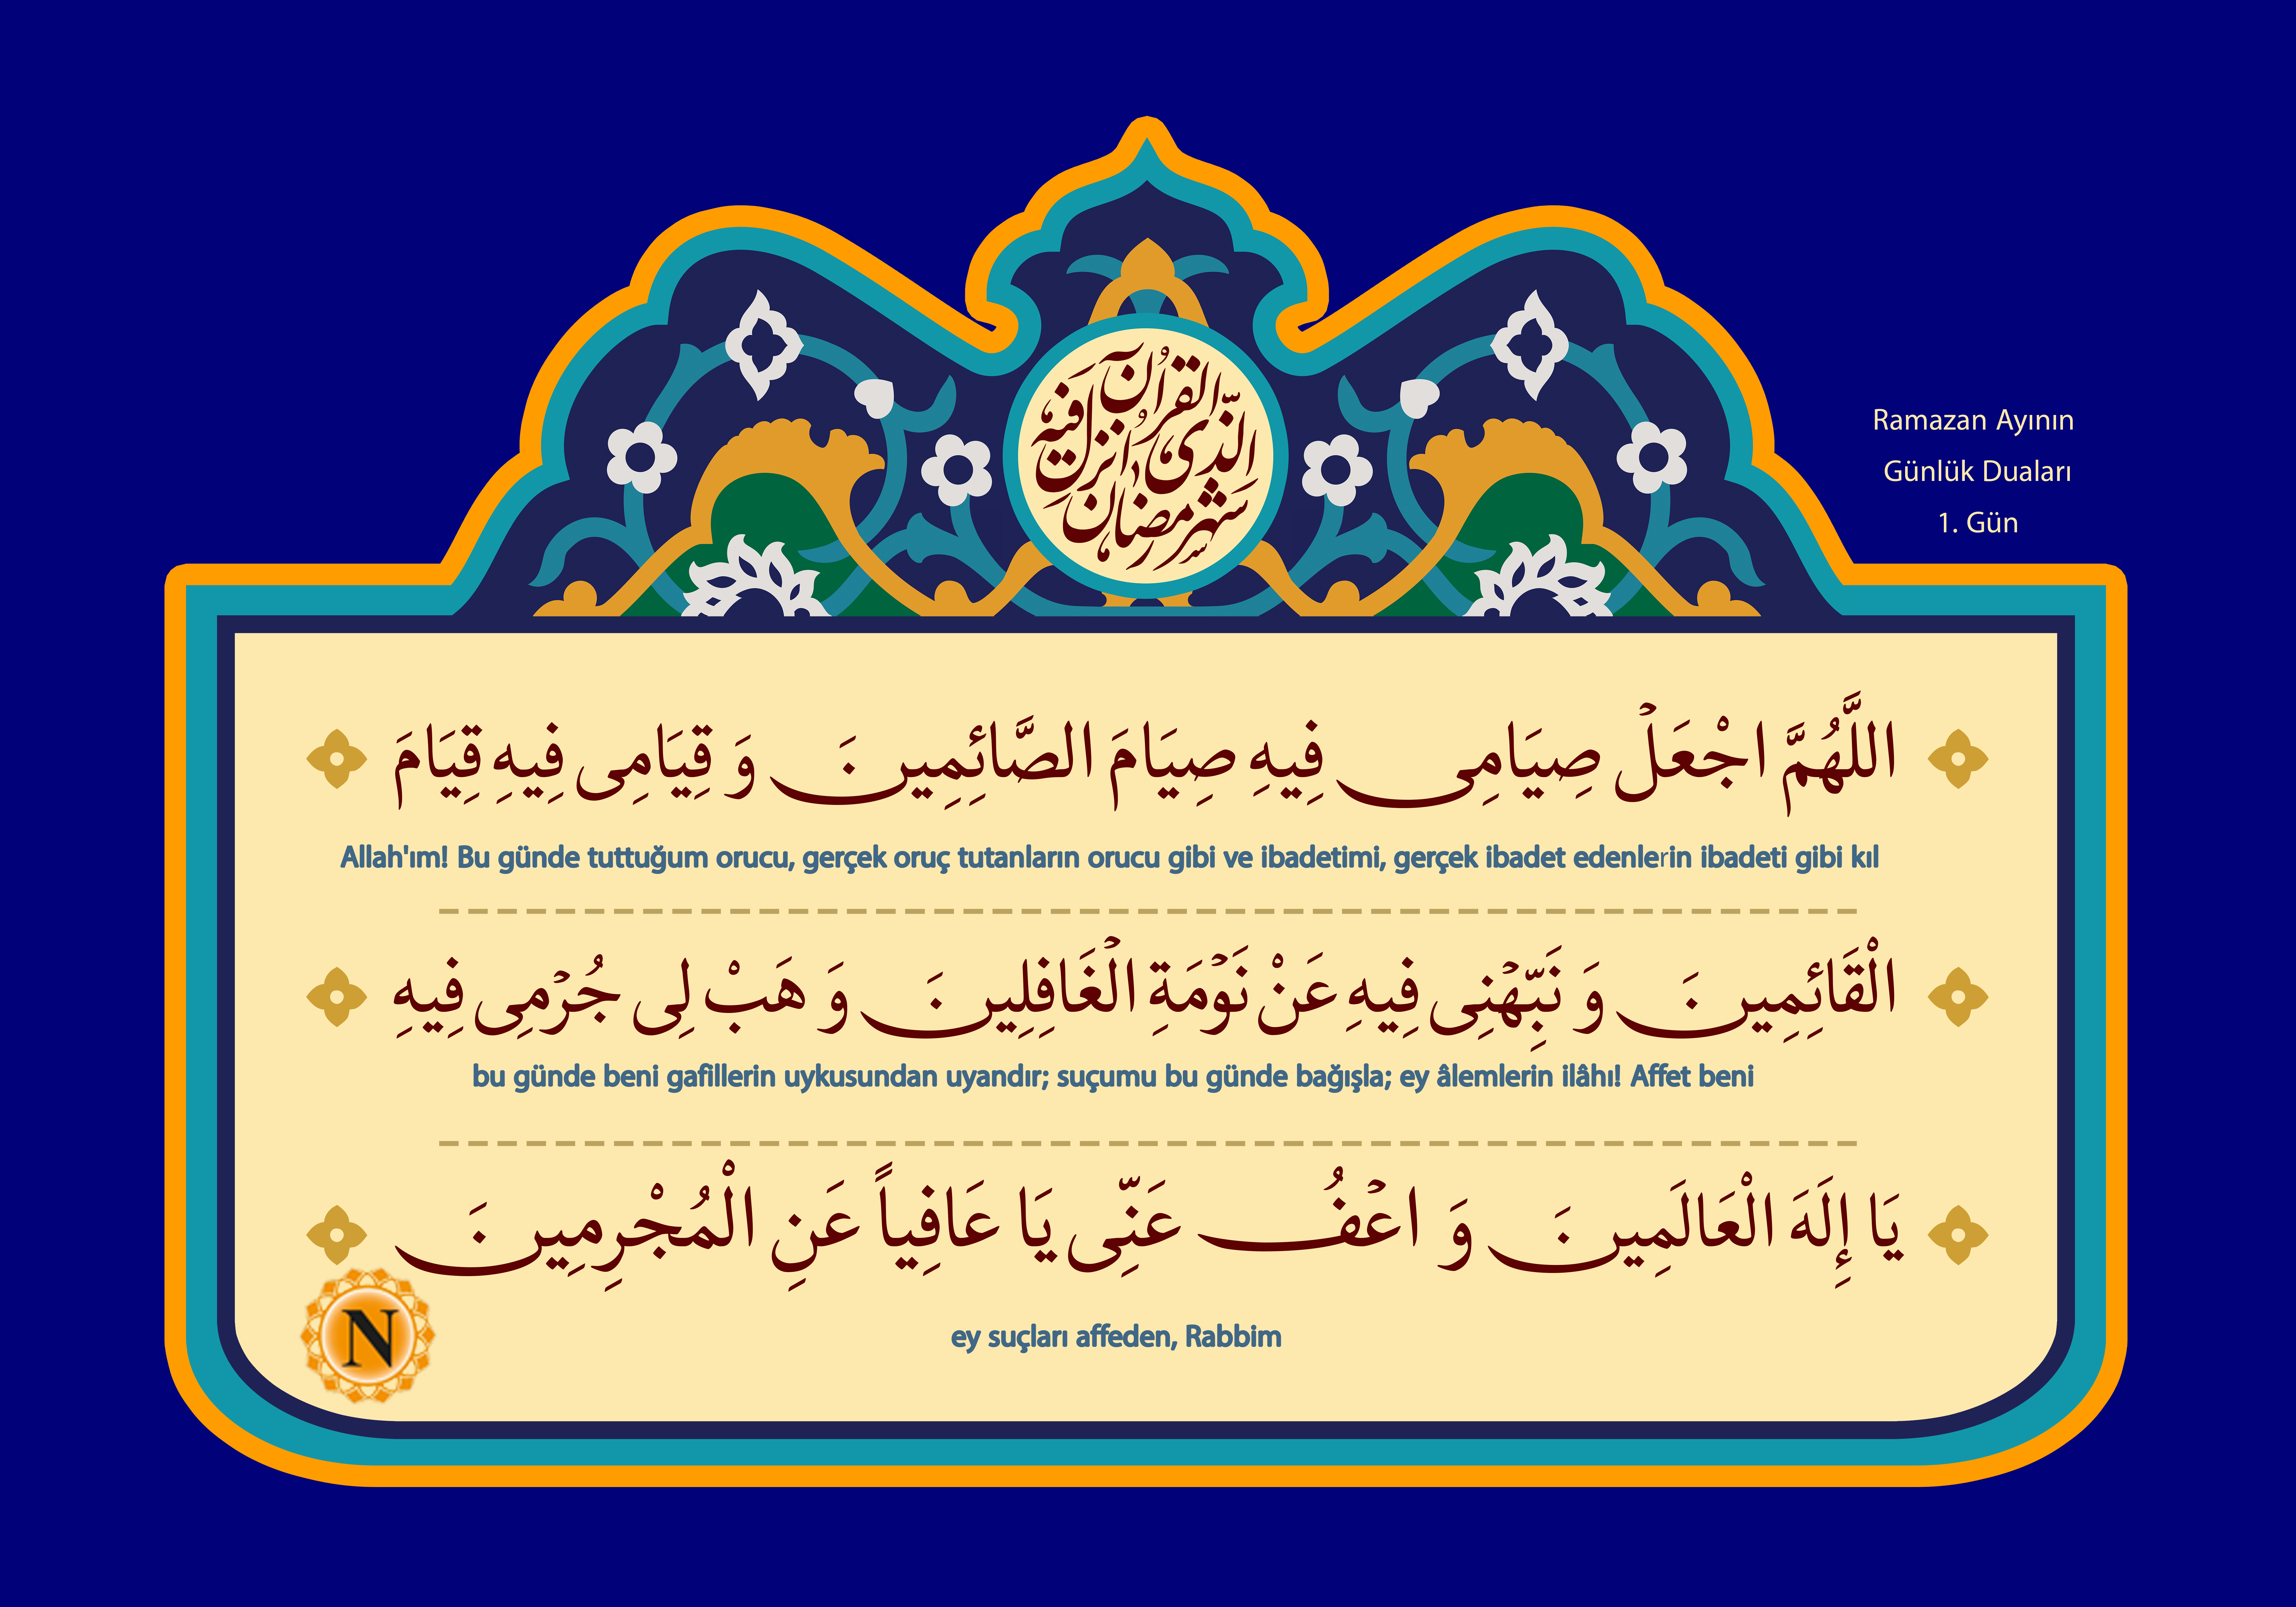 شهر رمضان الذی انزل فیه القرآن
Ramazan Ayının
Günlük Duaları
1. Gün
اللَّهُمَّ اجْعَلْ صِيَامِی فِيهِ صِيَامَ الصَّائِمِينَ وَ قِيَامِی فِيهِ قِيَامَ
Allah'ım! Bu günde tuttuğum orucu, gerçek oruç tutanların orucu gibi ve ibadetimi, gerçek ibadet edenlerin ibadeti gibi kıl
الْقَائِمِينَ وَ نَبِّهْنِی فِيهِ عَنْ نَوْمَةِ الْغَافِلِينَ وَ هَبْ لِی جُرْمِی فِيهِ
bu günde beni gafillerin uykusundan uyandır; suçumu bu günde bağışla; ey âlemlerin ilâhı! Affet beni
يَا إِلَهَ الْعَالَمِينَ وَ اعْفُ عَنِّی يَا عَافِياً عَنِ الْمُجْرِمِينَ
ey suçları affeden, Rabbim
N